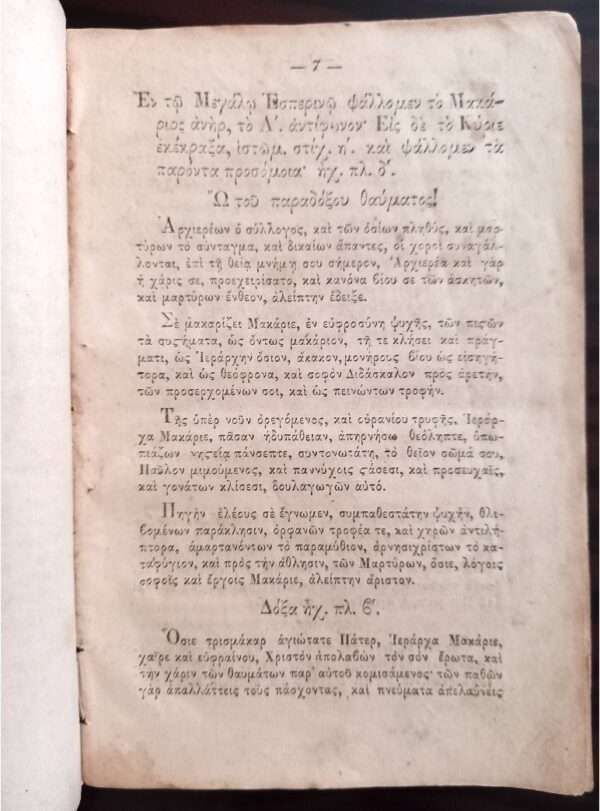 — 7 —
Ἐν τῷ Μεγάλῳ Ἑσπερινῷ ψάλλομεν τὸ Μακά-
ριος ἀνὴρ, τὸ Α΄. ἀντίφωνον· Εἰς δὲ τὸ Κύριε
ἐκέκραξα, ἱστῶμ. στίχ. η΄. καὶ ψάλλομεν τὰ
παρόντα προσόμοια· ἦχ. πλ. δ΄.
Ὢ τοῦ παραδόξου θαύματος!
Ἀρχιερέων ὁ σύλλογος, καὶ τῶν ὁσίων πληθὺς, καὶ μαρ-
τύρων τὸ σύνταγμα, καὶ δικαίων ἅπαντες, οἱ χοροὶ συναγάλ-
λονται, ἐπὶ τῇ θείᾳ μνήμῃ σου σήμερον, Ἀρχιερέα καὶ γὰρ
ἡ χάρις σε, προεχειρίσατο, καὶ κανόνα βίου σε τῶν ἀσκητῶν,
καὶ μαρτύρων ἔνθεον, ἀλείπτην ἔδειξε.
Σὲ μακαρίζει Μακάριε, ἐν εὐφροσύνῃ ψυχῆς, τῶν πιϛῶν
τὰ συϛήματα, ὡς ὄντως μακάριον, τῇ τε κλήσει καὶ πράγ-
ματι, ὡς Ἱεράρχην ὅσιον, ἄκακον, μονήρους βίου ὡς εἰσηγή-
τορα, καὶ ὡς θεόφρονα, καὶ σοφὸν Διδάσκαλον πρὸς ἀρετὴν,
τῶν προσερχομένων σοι, καὶ ὡς πεινώντων τροφήν.
Τῆς ὑπὲρ νοῦν ὀρεγόμενος, καὶ οὐρανίου τρυφῆς, Ἱεράρ-
χα Μακάριε, πᾶσαν ἡδυπάθειαν, ἀπηρνήσω θεόληπτε, ὑπωπ-
πιάζων νηϛείᾳ πάνσεπτε, συντονωτάτῃ, τὸ θεῖον σῶμά σου,
Παῦλον μιμούμενος, καὶ παννύχοις ϛάσεσι, καὶ προσευχαῖς,
καὶ γονάτων κλίσεσι, δουλαγωγῶν αὐτό.
Πηγὴν ἐλέους σὲ ἔγνωμεν, συμπαθεστάτην ψυχὴν, θλι-
βομένων παράκλησιν, ὀρφανῶν τροφέα τε, καὶ χηρῶν ἀντιλή-
πτορα, ἁμαρτανόντων τὸ παραμύθιον, ἀρνησιχρίστων τὸ κα-
ταφύγιον, καὶ πρὸς τὴν ἄθλησιν, τῶν Μαρτύρων, ὅσιε, λόγοις
σοφοῖς καὶ ἔργοις Μακάριε, ἀλείπτην ἄριστον.
Δόξα ἦχ. πλ. β΄.
Ὅσιε τρισμάκαρ ἁγιώτατε Πάτερ, Ἱεράρχα Μακάριε,
χαῖρε καὶ εὐφραίνου, Χριστὸν ἀπολαβὼν τὸν σὸν ἔρωτα, καὶ
τὴν χάριν τῶν θαυμάτων παρ' αὐτοῦ κομισάμενος· τῶν παθῶν
γὰρ ἀπαλλάττεις τοὺς πάσχοντας, καὶ πνεύματα ἀπελαύνεις